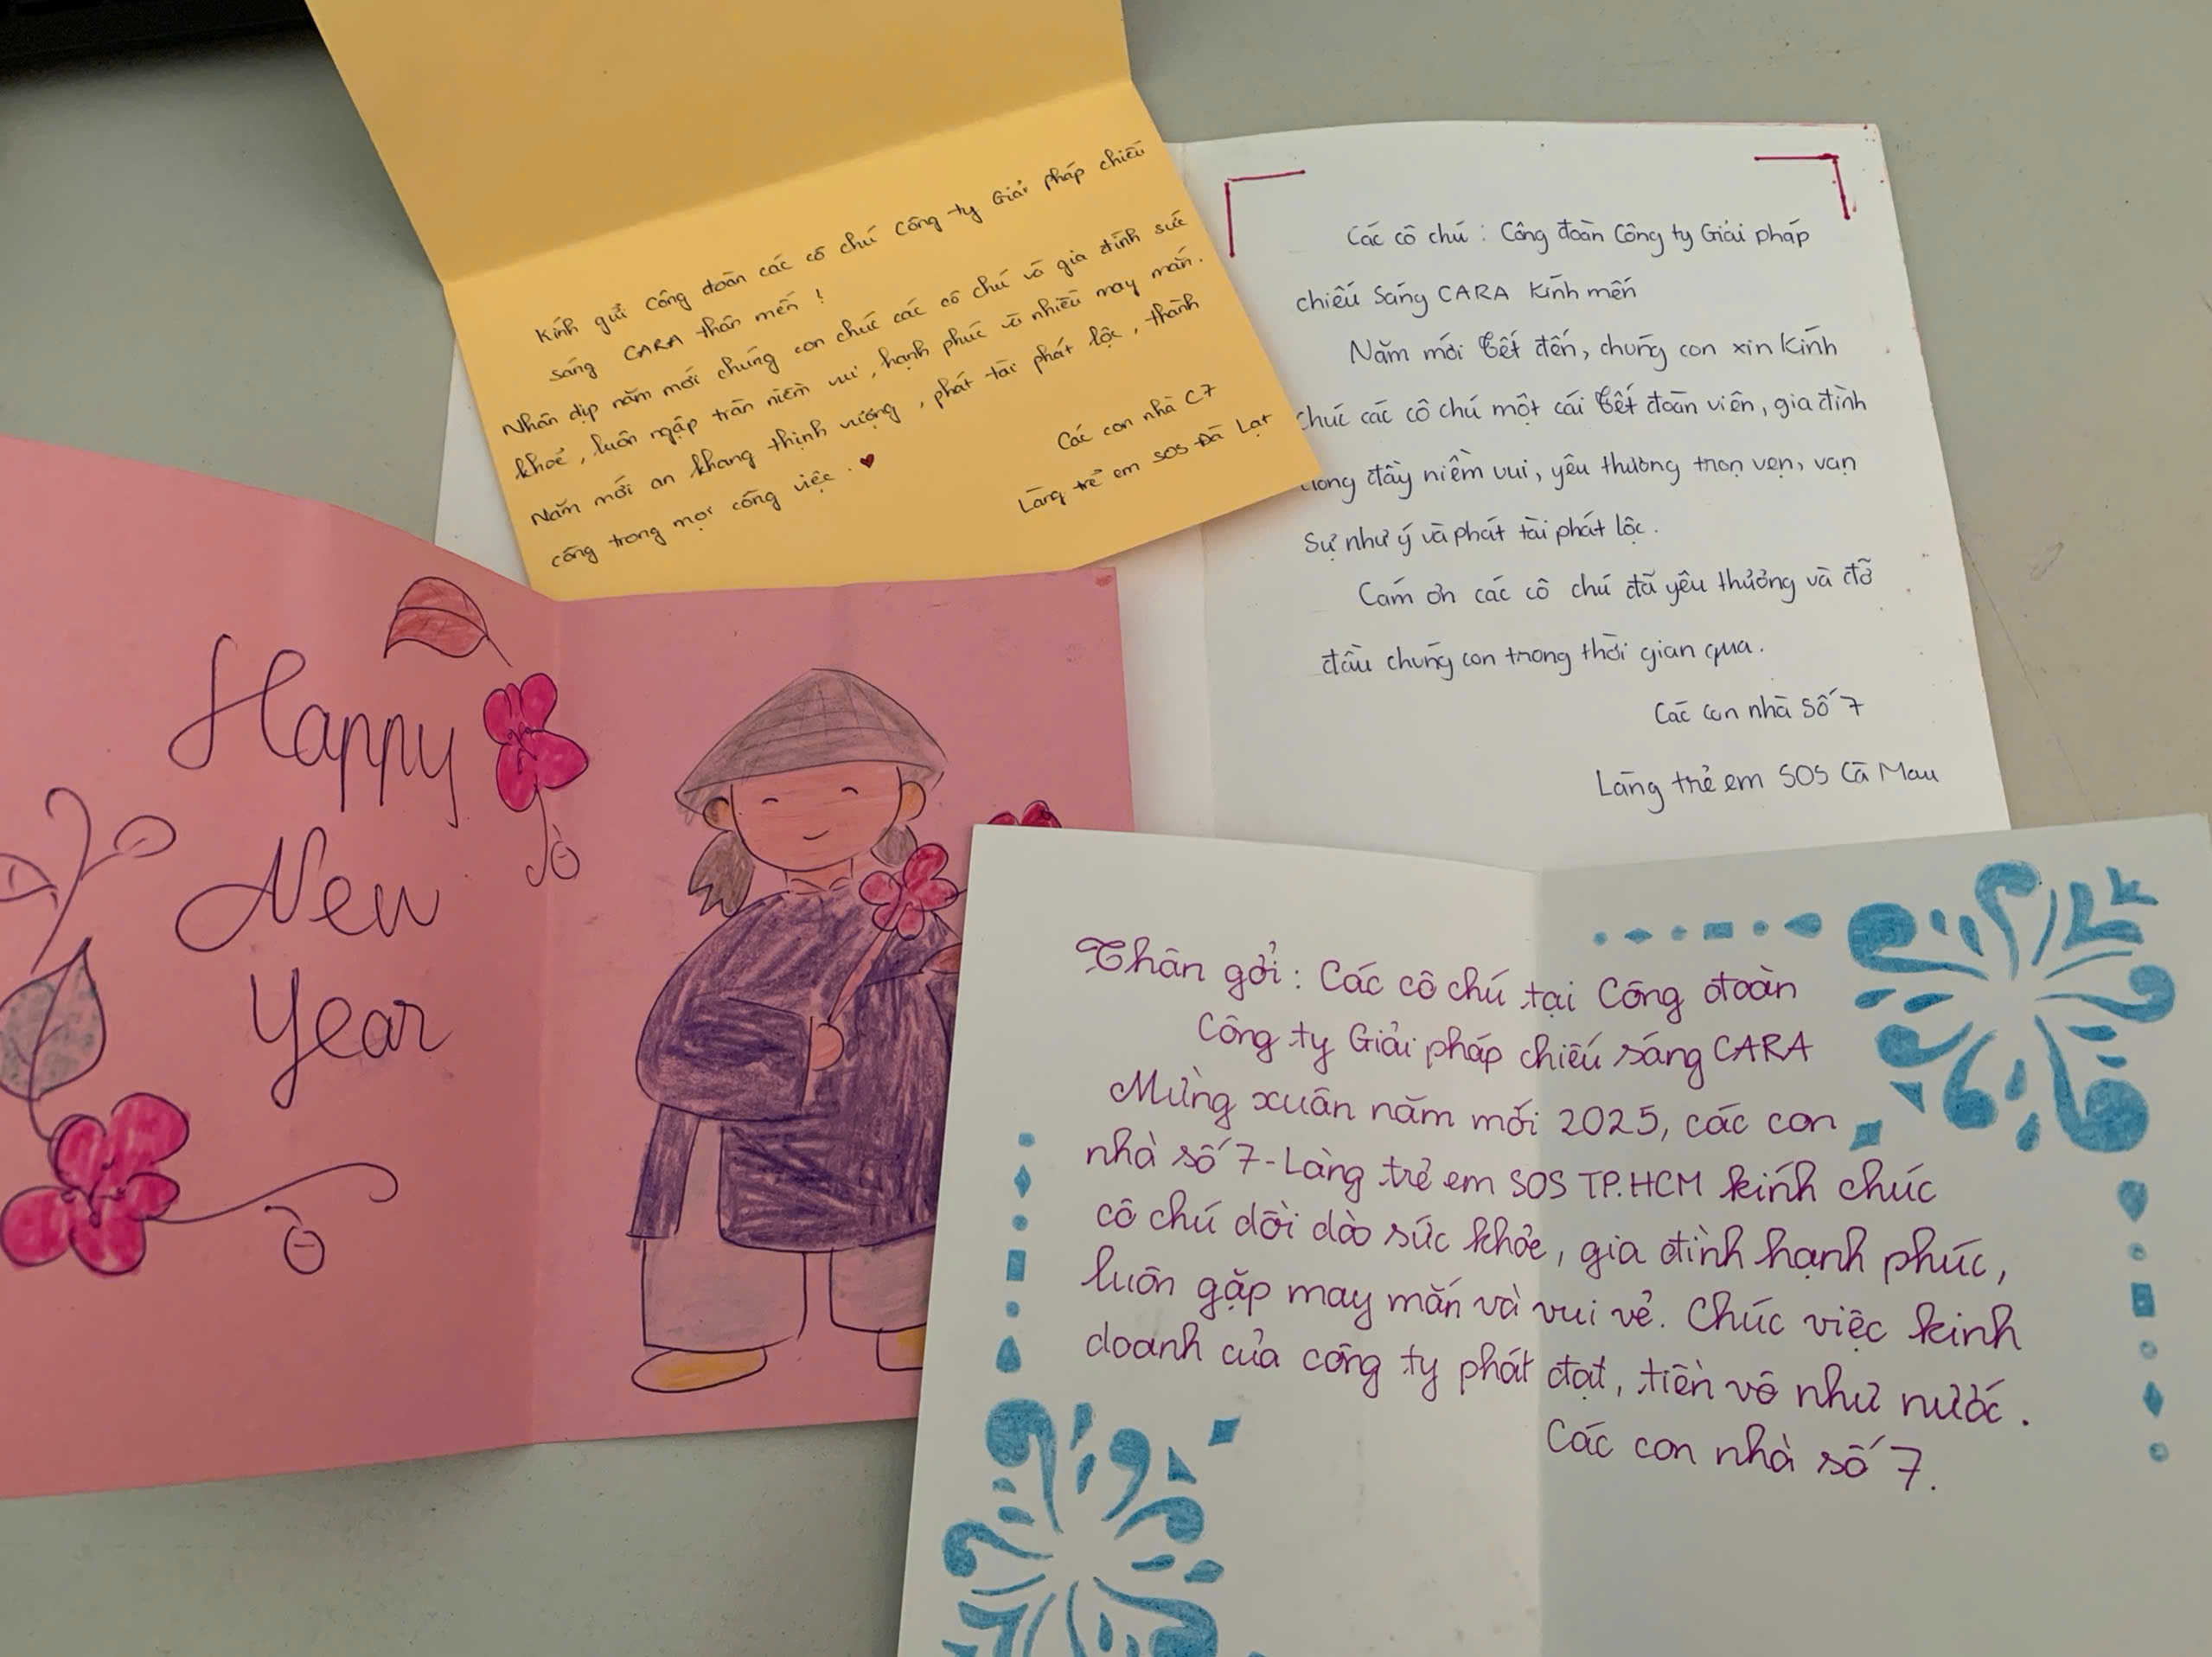 Kính gửi Công đoàn các cô chú Công ty Giải pháp chiếu
sáng CARA thân mến !
Nhân dịp năm mới chúng con chúc các cô chú và gia đình sức
khoẻ, luôn ngập tràn niềm vui, hạnh phúc và nhiều may mắn.
Năm mới an khang thịnh vượng, phát tài phát lộc, thành
công trong mọi công việc.
Các con nhà C7
Làng trẻ em SOS Đà Lạt
Các cô chú : Công đoàn Công ty Giải pháp
chiếu sáng CARA kính mến
Năm mới Tết đến, chúng con xin kính
chúc các cô chú một cái Tết đoàn viên, gia đình
đầy niềm vui, yêu thương trọn vẹn, vạn
sự như ý và phát tài phát lộc.
Cám ơn các cô chú đã yêu thương và đỡ
đầu chúng con trong thời gian qua.
Các con nhà số 7
Làng trẻ em SOS Cà Mau
Happy
New
Year
Thân gởi: Các cô chú tại Công đoàn
Công ty Giải pháp chiếu sáng CARA
Mừng xuân năm mới 2025, các con
nhà số 7-Làng trẻ em SOS TP.HCM kính chúc
cô chú dồi dào sức khỏe, gia đình hạnh phúc,
luôn gặp may mắn và vui vẻ. Chúc việc kinh
doanh của công ty phát đạt, tiền vô như nước.
Các con nhà số 7.